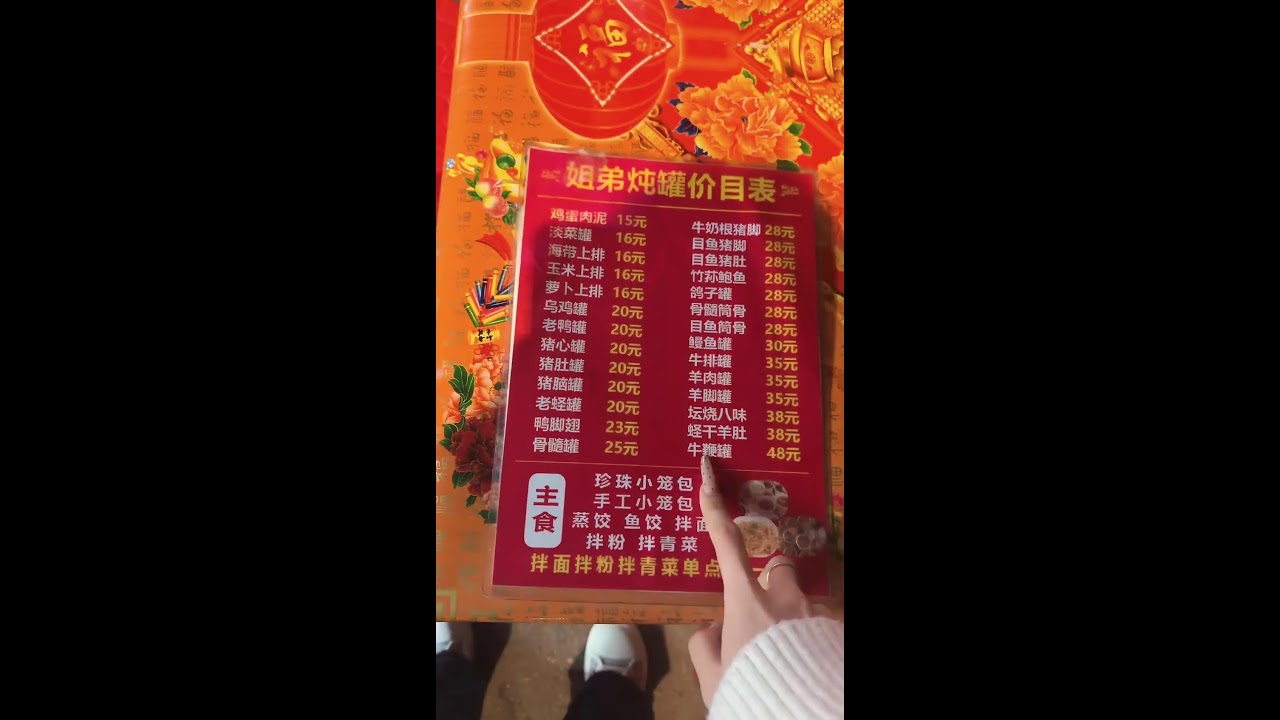 福
姐弟炖罐价目表
鸡蛋肉泥 15元
淡菜罐 16元
海带上排 16元
玉米上排 16元
萝卜上排 16元
乌鸡罐 20元
老鸭罐 20元
猪心罐 20元
猪肚罐 20元
猪脑罐 20元
老蛏罐 20元
鸭脚翅 23元
骨髓罐 25元
牛奶根猪脚 28元
目鱼猪脚 28元
目鱼猪肚 28元
竹荪鲍鱼 28元
鸽子罐 28元
骨髓筒骨 28元
目鱼筒骨 28元
鳗鱼罐 30元
牛排罐 35元
羊肉罐 35元
羊脚罐 35元
坛烧八味 38元
蛏干羊肚 38元
牛鞭罐 48元
主食
珍珠小笼包
手工小笼包
蒸饺 鱼饺 拌面
拌粉 拌青菜
拌面拌粉拌青菜单点